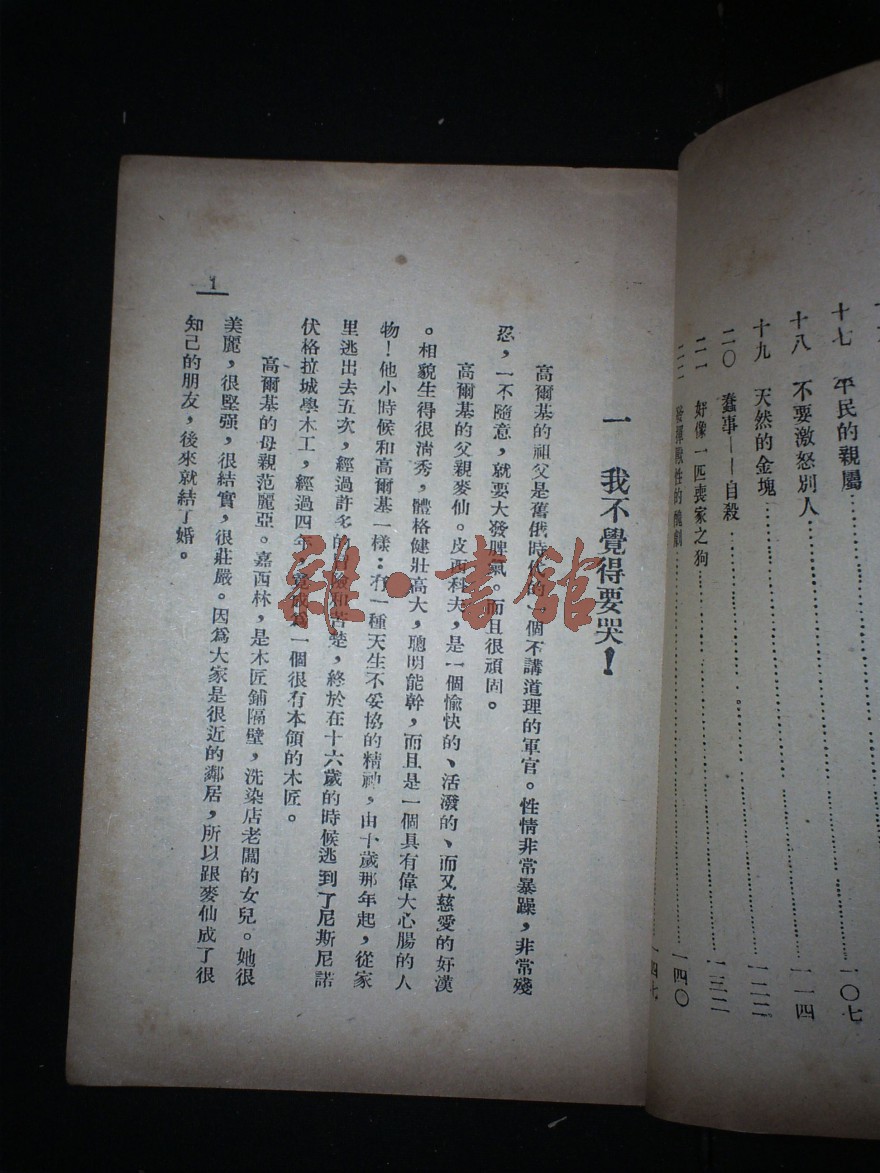 十七 平民的親屬……一〇七
十八 不要激怒別人……一一四
十九 天然的金塊……一二二
二〇 蠢事——自殺……一三二
二一 好像一匹喪家之狗……一四〇
二二 發揮獸性的醜劇……一四七
一 我不覺得要哭！
高爾基的祖父是舊俄時代的一個不講道理的軍官。性情非常暴躁，非常殘
忍，一不隨意，就要大發脾氣。而且很頑固。
高爾基的父親麥仙。皮西科夫，是一個愉快的、活潑的、而又慈愛的好漢
。相貌生得很淸秀，體格健壯高大，聰明能幹，而且是一個具有偉大心腸的人
物！他小時候和高爾基一樣：有一種天生不妥協的精神，由十歲那年起，從家
里逃出去五次，經過許多的冒險和苦楚，終於在十六歲的時候逃到了尼斯尼諾
伏格拉城學木工，經過四年，竟成爲一個很有本領的木匠。
高爾基的母親范麗亞。嘉西林，是木匠鋪隔壁，洗染店老闆的女兒。她很
美麗，很堅强，很結實，很莊嚴。因爲大家是很近的鄰居，所以跟麥仙成了很
知己的朋友，後來就結了婚。
1
雜·書館